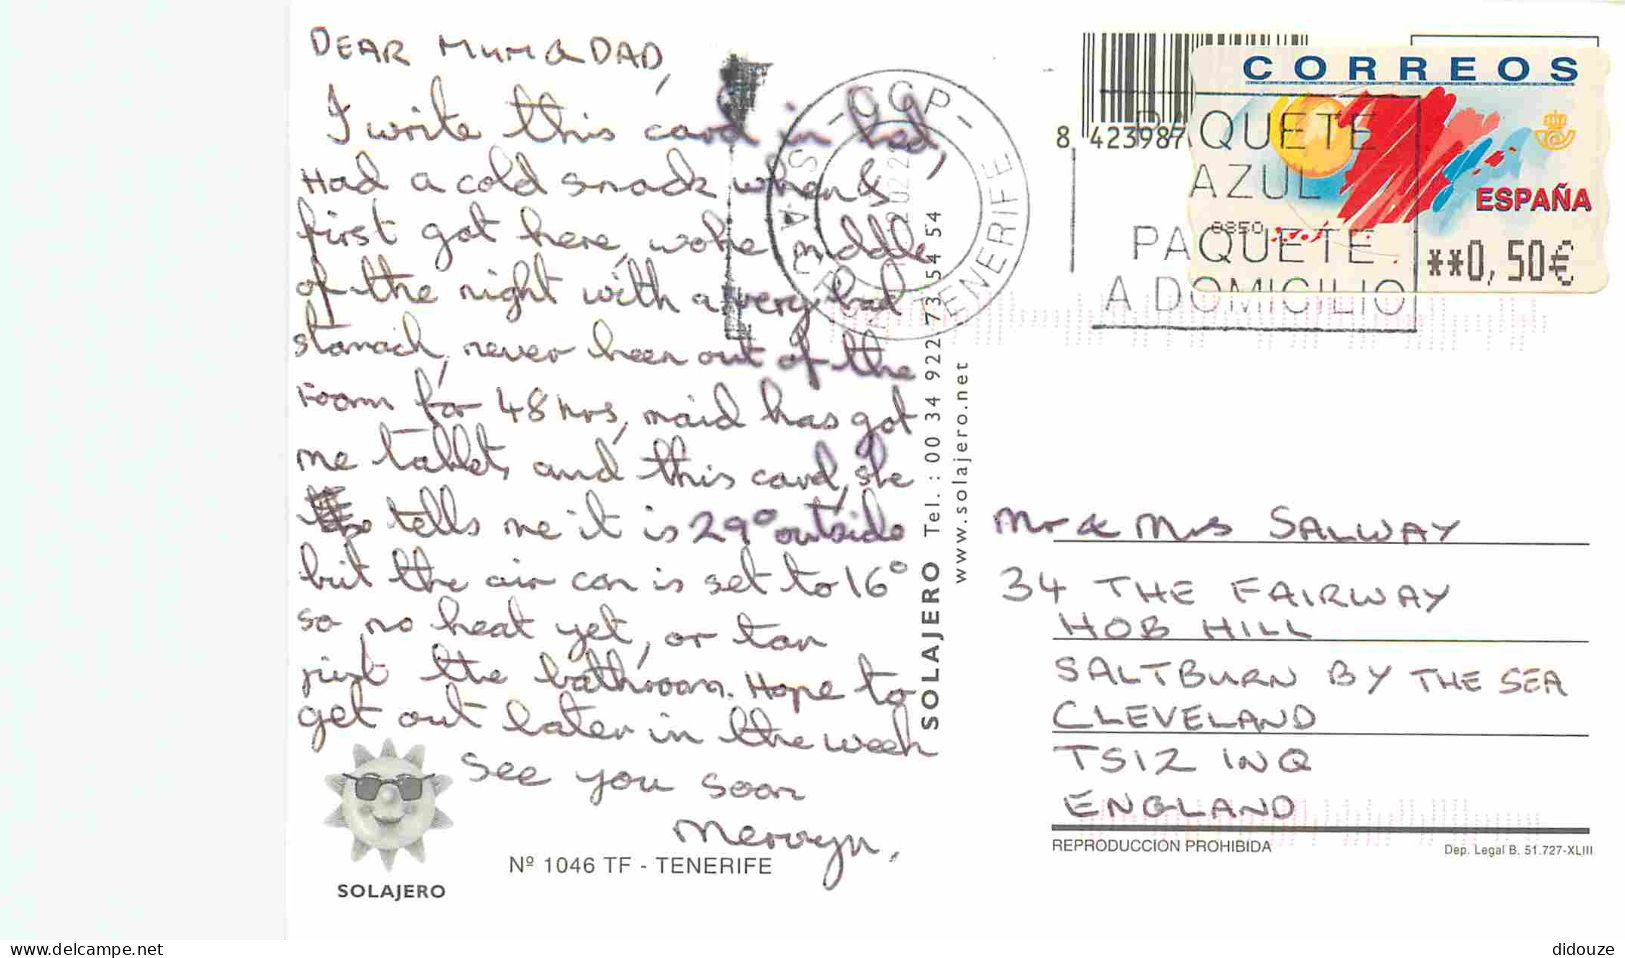 DEAR MUM & DAD,
I write this card in bed,
Had a cold snack when I
first got here, woke middle
of the night with a very bad
stomach, never been out of the
room for 48 hrs, maid has got
me tablets and this card, she
tells me it is 29° outside
but the air con is set to 16°
so no heat yet, or tan
just the bathroom. Hope to
get out later in the week
See you soon
Mervyn,
SOLAJERO
Nº 1046 TF - TENERIFE
SOLAJERO Tel.: 00 34 922 73 54 54
www.solajero.net
CCP
TENERIFE
8 423987
PAQUETE
AZUL
PAQUETE
A DOMICILIO
CORREOS
ESPAÑA
0350
**0,50€
Mr & Mrs SALWAY
34 THE FAIRWAY
HOB HILL
SALTBURN BY THE SEA
CLEVELAND
TS12 1NQ
ENGLAND
REPRODUCCION PROHIBIDA
Dep. Legal B. 51.727-XLIII
www.delcampe.net
didouze